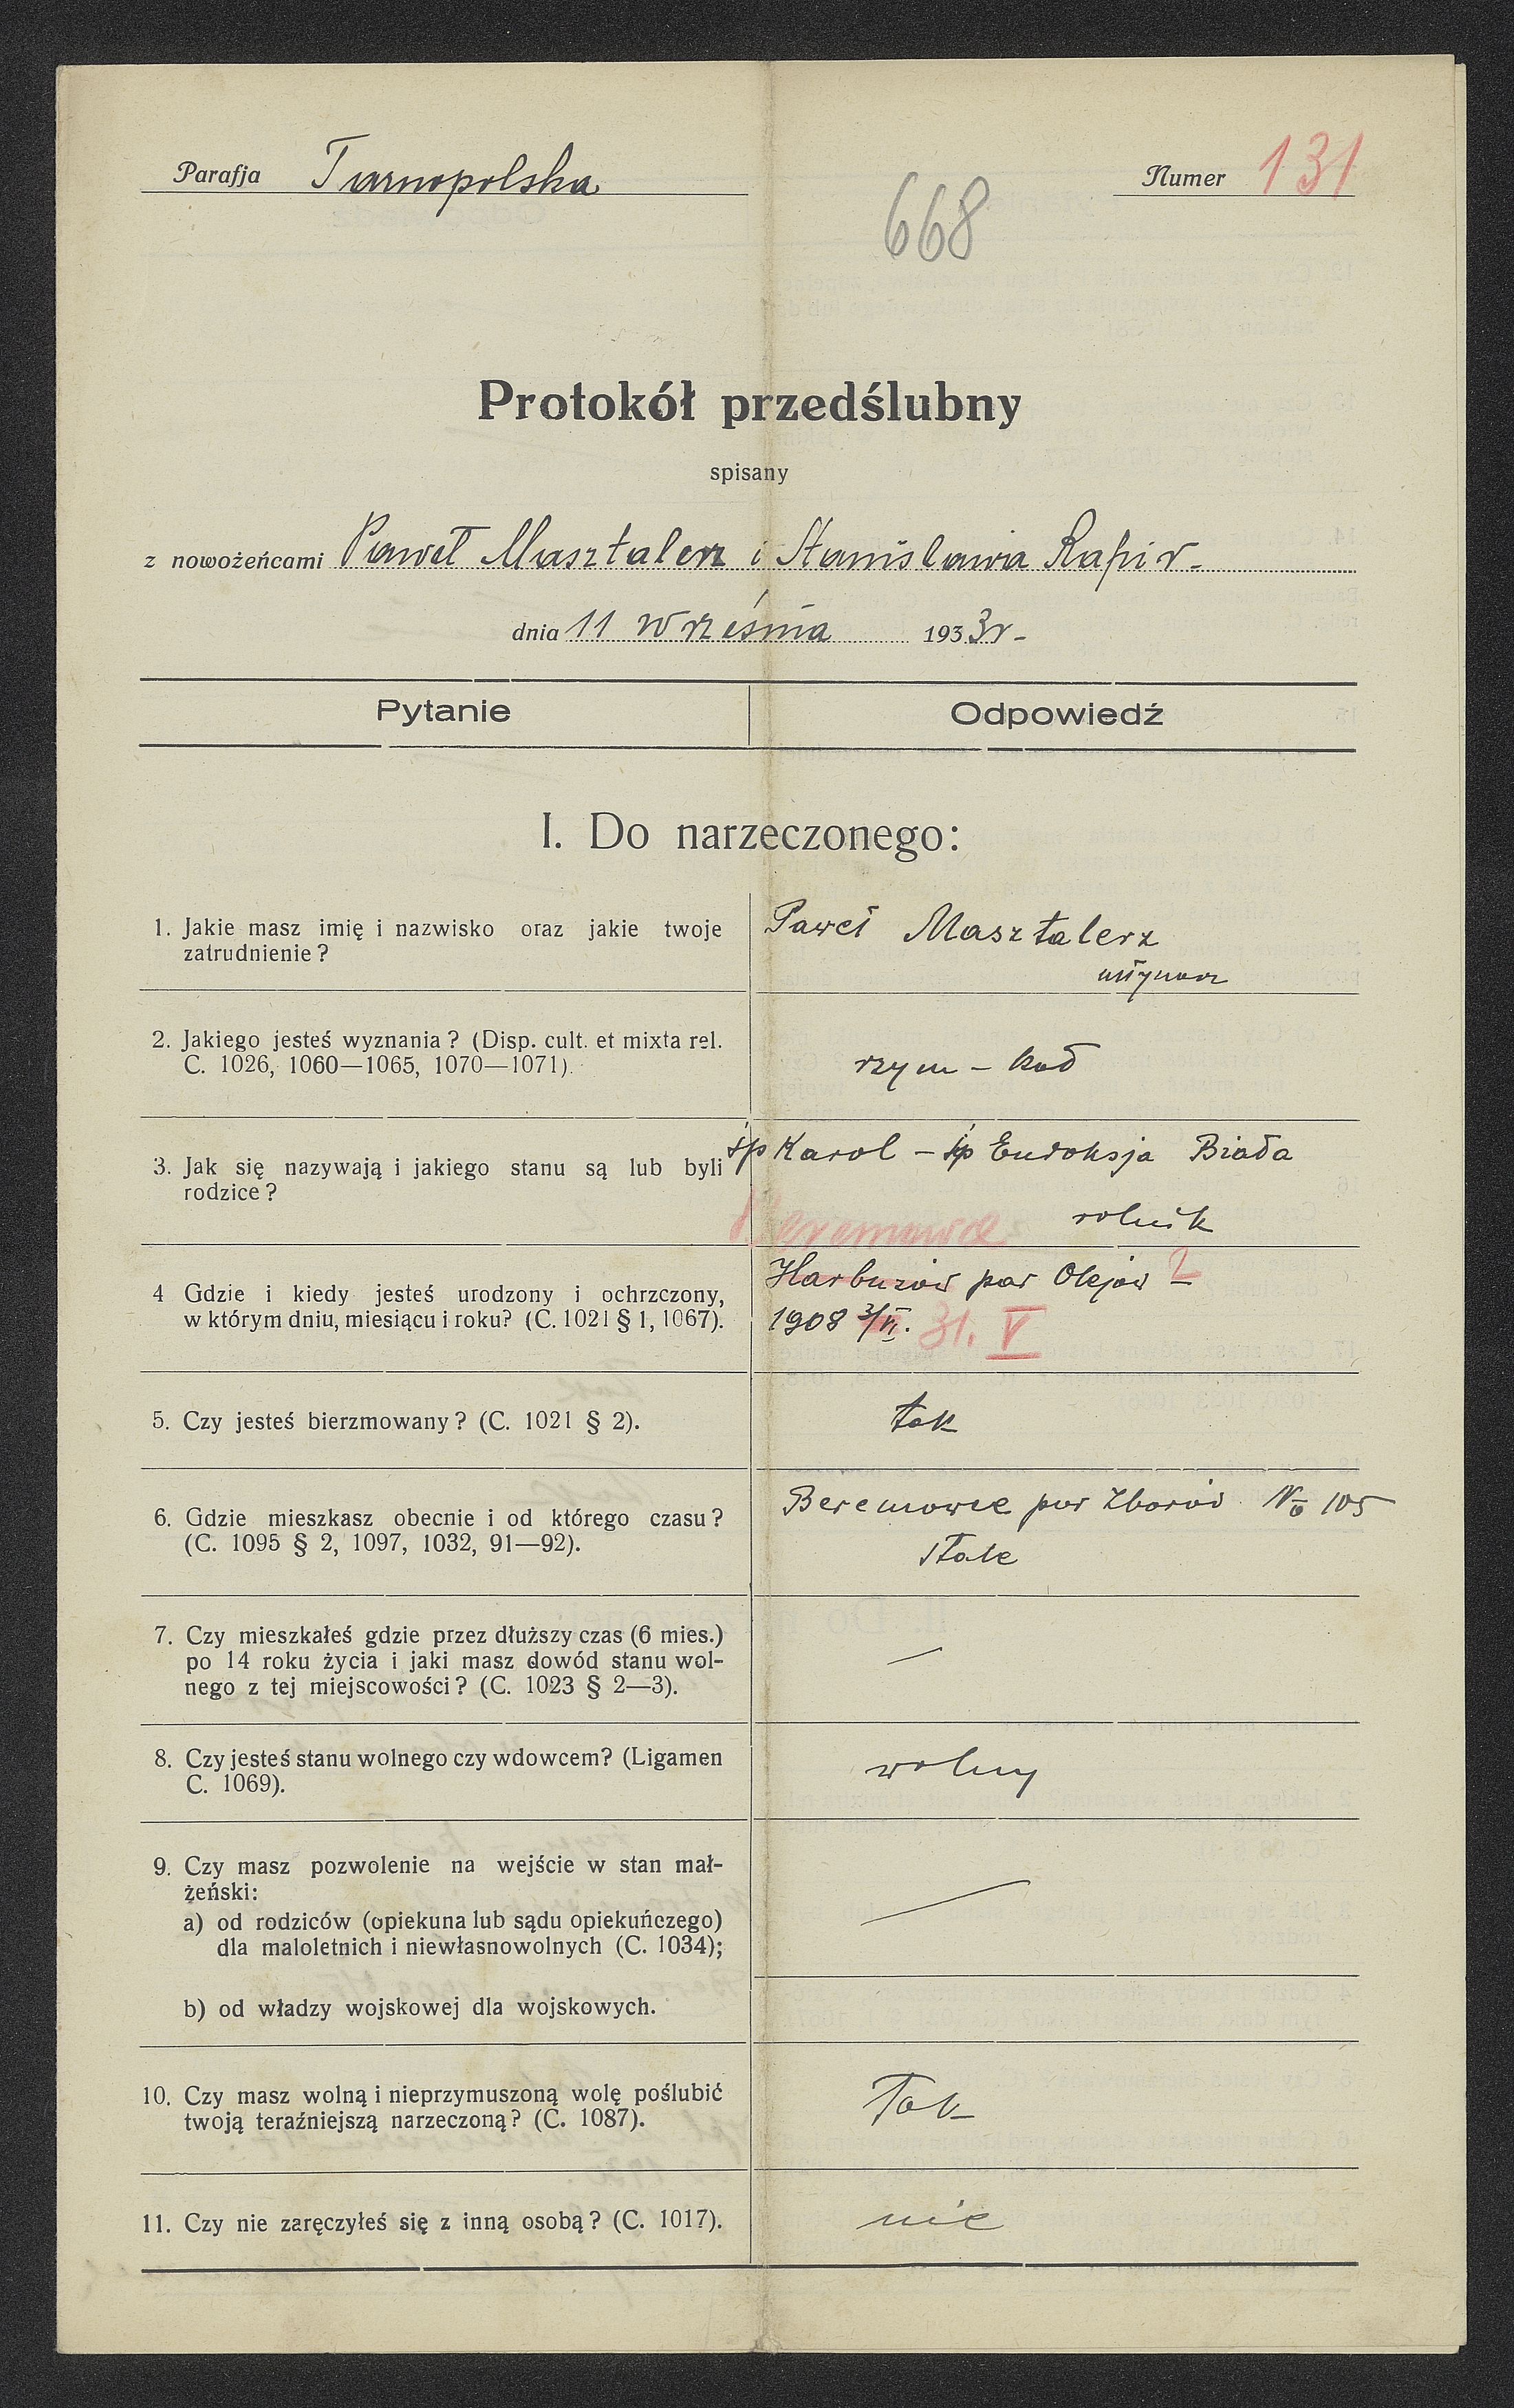 Parafja Tarnopolska
Numer 131
668
Protokół przedślubny
spisany
z nowożeńcami Paweł Masztalerz i Stanisława Rapir.
dnia 11 września 1933 r -
Pytanie Odpowiedź
I. Do narzeczonego:
1. Jakie masz imię i nazwisko oraz jakie twoje
zatrudnienie?
Paweł Masztalerz
młynarz
2. Jakiego jesteś wyznania? (Disp. cult. et mixta rel.
C. 1026, 1060—1065, 1070—1071).
rzym - kat
3. Jak się nazywają i jakiego stanu są lub byli
rodzice?
śp Karol - śp Eudoksja Biała
rolnik
Beremowce
4 Gdzie i kiedy jesteś urodzony i ochrzczony,
w którym dniu, miesiącu i roku? (C. 1021 § 1, 1067).
Harbuzów par Olejów ?
1908 3/VI. 31. V
5. Czy jesteś bierzmowany? (C. 1021 § 2).
tak
6. Gdzie mieszkasz obecnie i od którego czasu?
(C. 1095 § 2, 1097, 1032, 91—92).
Beremowce par Zborów No 105
stale
7. Czy mieszkałeś gdzie przez dłuższy czas (6 mies.)
po 14 roku życia i jaki masz dowód stanu wol-
nego z tej miejscowości? (C. 1023 § 2—3).
—
8. Czy jesteś stanu wolnego czy wdowcem? (Ligamen
C. 1069).
wolny
9. Czy masz pozwolenie na wejście w stan mał-
żeński:
a) od rodziców (opiekuna lub sądu opiekuńczego)
dla maloletnich i niewłasnowolnych (C. 1034);
—
b) od władzy wojskowej dla wojskowych.
10. Czy masz wolną i nieprzymuszoną wolę poślubić
twoją teraźniejszą narzeczoną? (C. 1087).
Tak
11. Czy nie zaręczyłeś się z inną osobą? (C. 1017).
nie